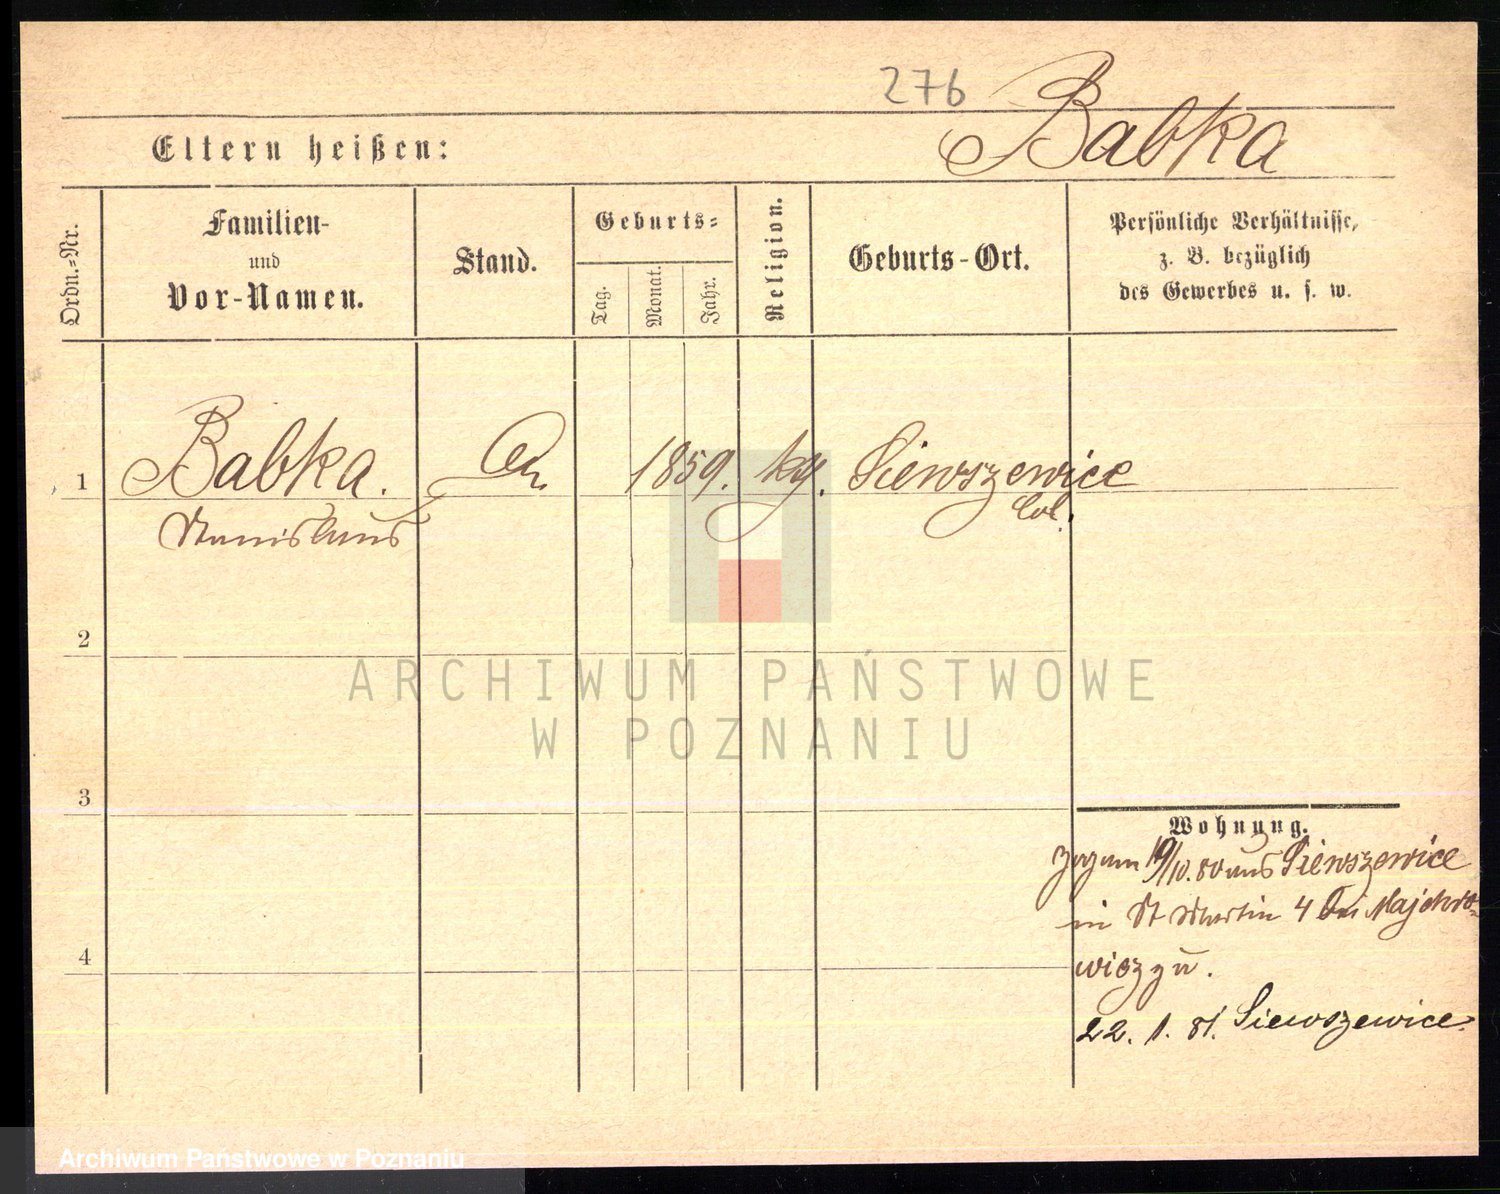 276
Babka
Eltern heißen:
Ordn.-Nr.
Familien-
und
Vor-Namen.
Stand.
Geburts-
Tag.
Monat.
Jahr.
Religion.
Geburts-Ort.
Persönliche Verhältnisse,
z. B. bezüglich
des Gewerbes u. s. w.
1 Babka. 1859. kth. Siewszewice
Stanislaus
2
3
4
Wohnung.
zog am 19/10.80 aus Siewszewice
in St Martin 4 bei Majchro-
wicz zu.
22. 1. 81. Siewszewice.
ARCHIWUM PAŃSTWOWE
W POZNANIU
Archiwum Państwowe w Poznaniu